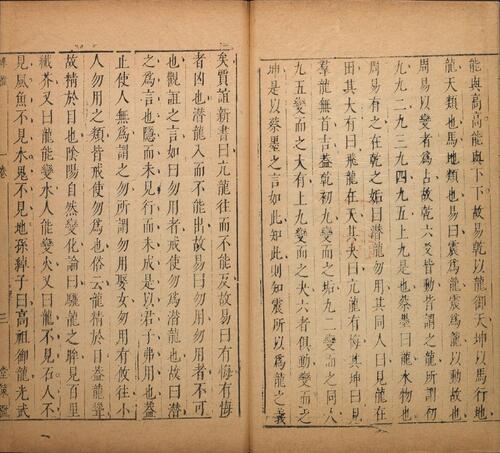 能與高高能與下下故易乾以龍御天坤以馬行地
龍天類也馬地類也易曰震爲龍震以動故也
周易以變者爲占故乾六爻皆動皆謂之龍所謂初
九九二九三九四九五上九是也蔡墨曰龍水物也
周易有之在乾之姤曰潛龍勿用其同人曰見龍在
田其大有曰飛龍在天其夬曰亢龍有悔其坤曰見
羣龍無首吉蓋乾初九變而之姤九二變而之同人
九五變而之大有上九變而之夬六者俱動變而之
坤是以蔡墨之言如此知此則知震所以爲龍之義
矣賈誼新書曰亢龍往而不能反故易曰有悔有悔
者凶也潛龍入而不能出故易曰勿用勿用者不可
也觀誼之言如曰勿用者戒使勿爲潛龍也故曰潛
之爲言也隱而未見行而未成是以君子弗用也蓋
止使人無爲謂之勿所謂勿用娶女勿用有攸往小
人勿用之類皆戒使勿爲也俗云龍精於目蓋龍聾
故精於目也陰陽自然變化論曰驪龍之眸見百里
纖芥又曰龍能變水人能變火又曰龍不見石人不
見風魚不見水鬼不見地孫綽子曰高祖御龍光武
卷 三